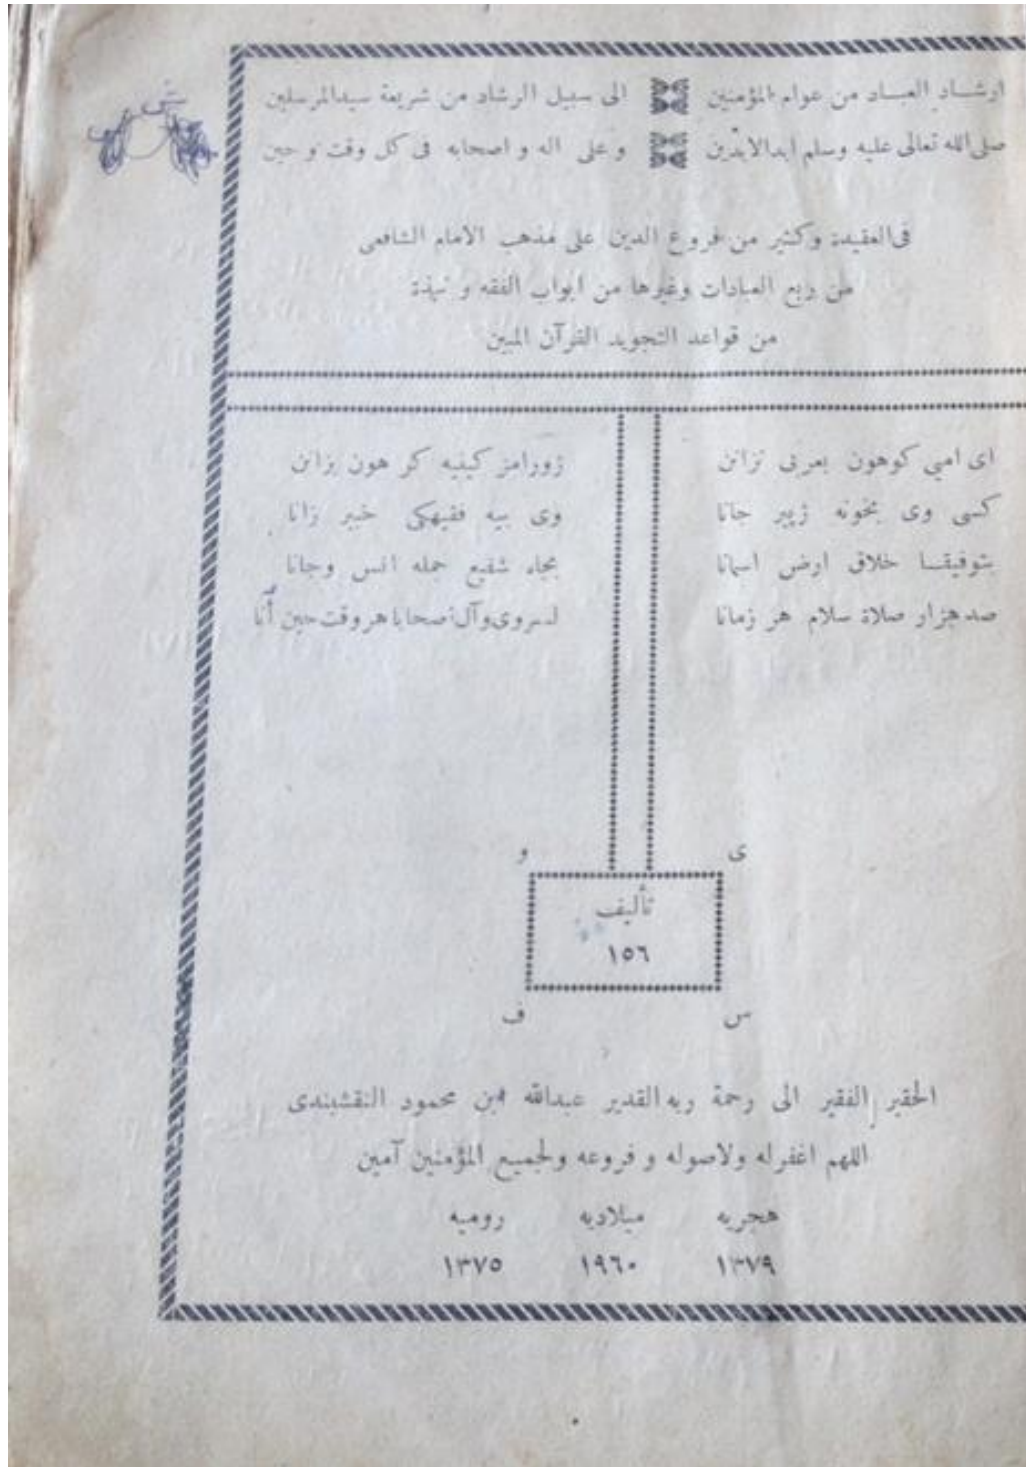 ارشاد العباد من عوام المؤمنين الى سبيل الرشاد من شريعة سيدالمرسلين
صلى الله تعالى عليه وسلم ابدالابدين وعلى اله و اصحابه فى كل وقت و حين
فى العقيدة وكثير من فروع الدين على مذهب الامام الشافعى
من ربع العبادات وغيرها من ابواب الفقه و نبذة
من قواعد التجويد القرآن المبين
اى امى كوهون بعربى نزانن ژورامز كيفيه كر هون بزانن
كسى وى بخونه ژپير جانا وى بيه فقيهكى خبير زانا
بتوفيقا خلاق ارض اسمانا بجاه شفيع جمله انس وجانا
صد هزار صلاة سلام هر زمانا لسروى وآل اصحابا هر وقت حين أنا
ى و
تأليف
١٥٦
س ف
الحقير الفقير الى رحمة ربه القدير عبدالله بن محمود النقشبندى
اللهم اغفرله ولاصوله و فروعه ولجميع المؤمنين آمين
هجريه ميلاديه روميه
١٣٧٩ ١٩٦٠ ١٣٧٥